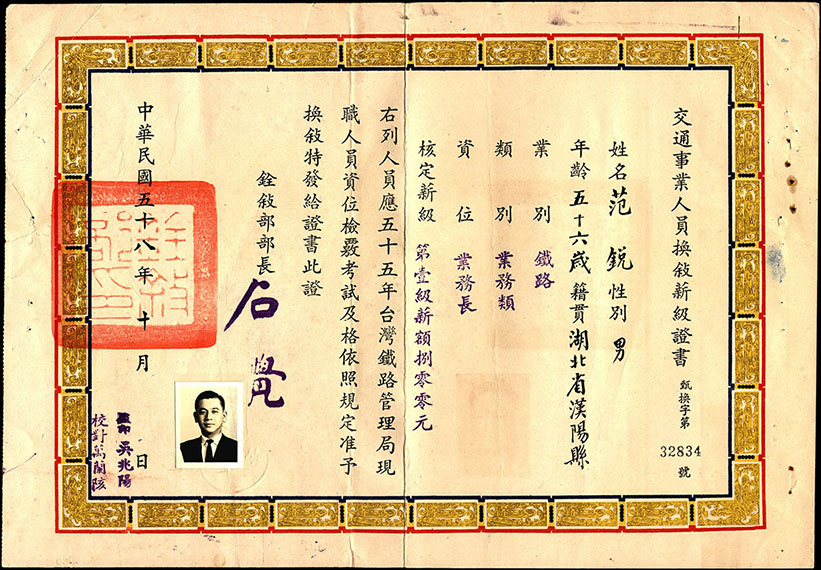 交通事業人員換敘薪級證書 甄換字第32834號
姓名 范銳 性別 男
年齡 五十六歲 籍貫 湖北省漢陽縣
業別 鐵路
類別 業務類
資位 業務長
核定薪級 第壹級薪額捌零零元
右列人員應五十五年台灣鐵路管理局現
職人員資位檢覈考試及格依照規定准予
換敘特發給證書此證
銓敘部部長 石覺
中華民國五十八年十月 日
監印 吳兆陽
校對萬蘭陔